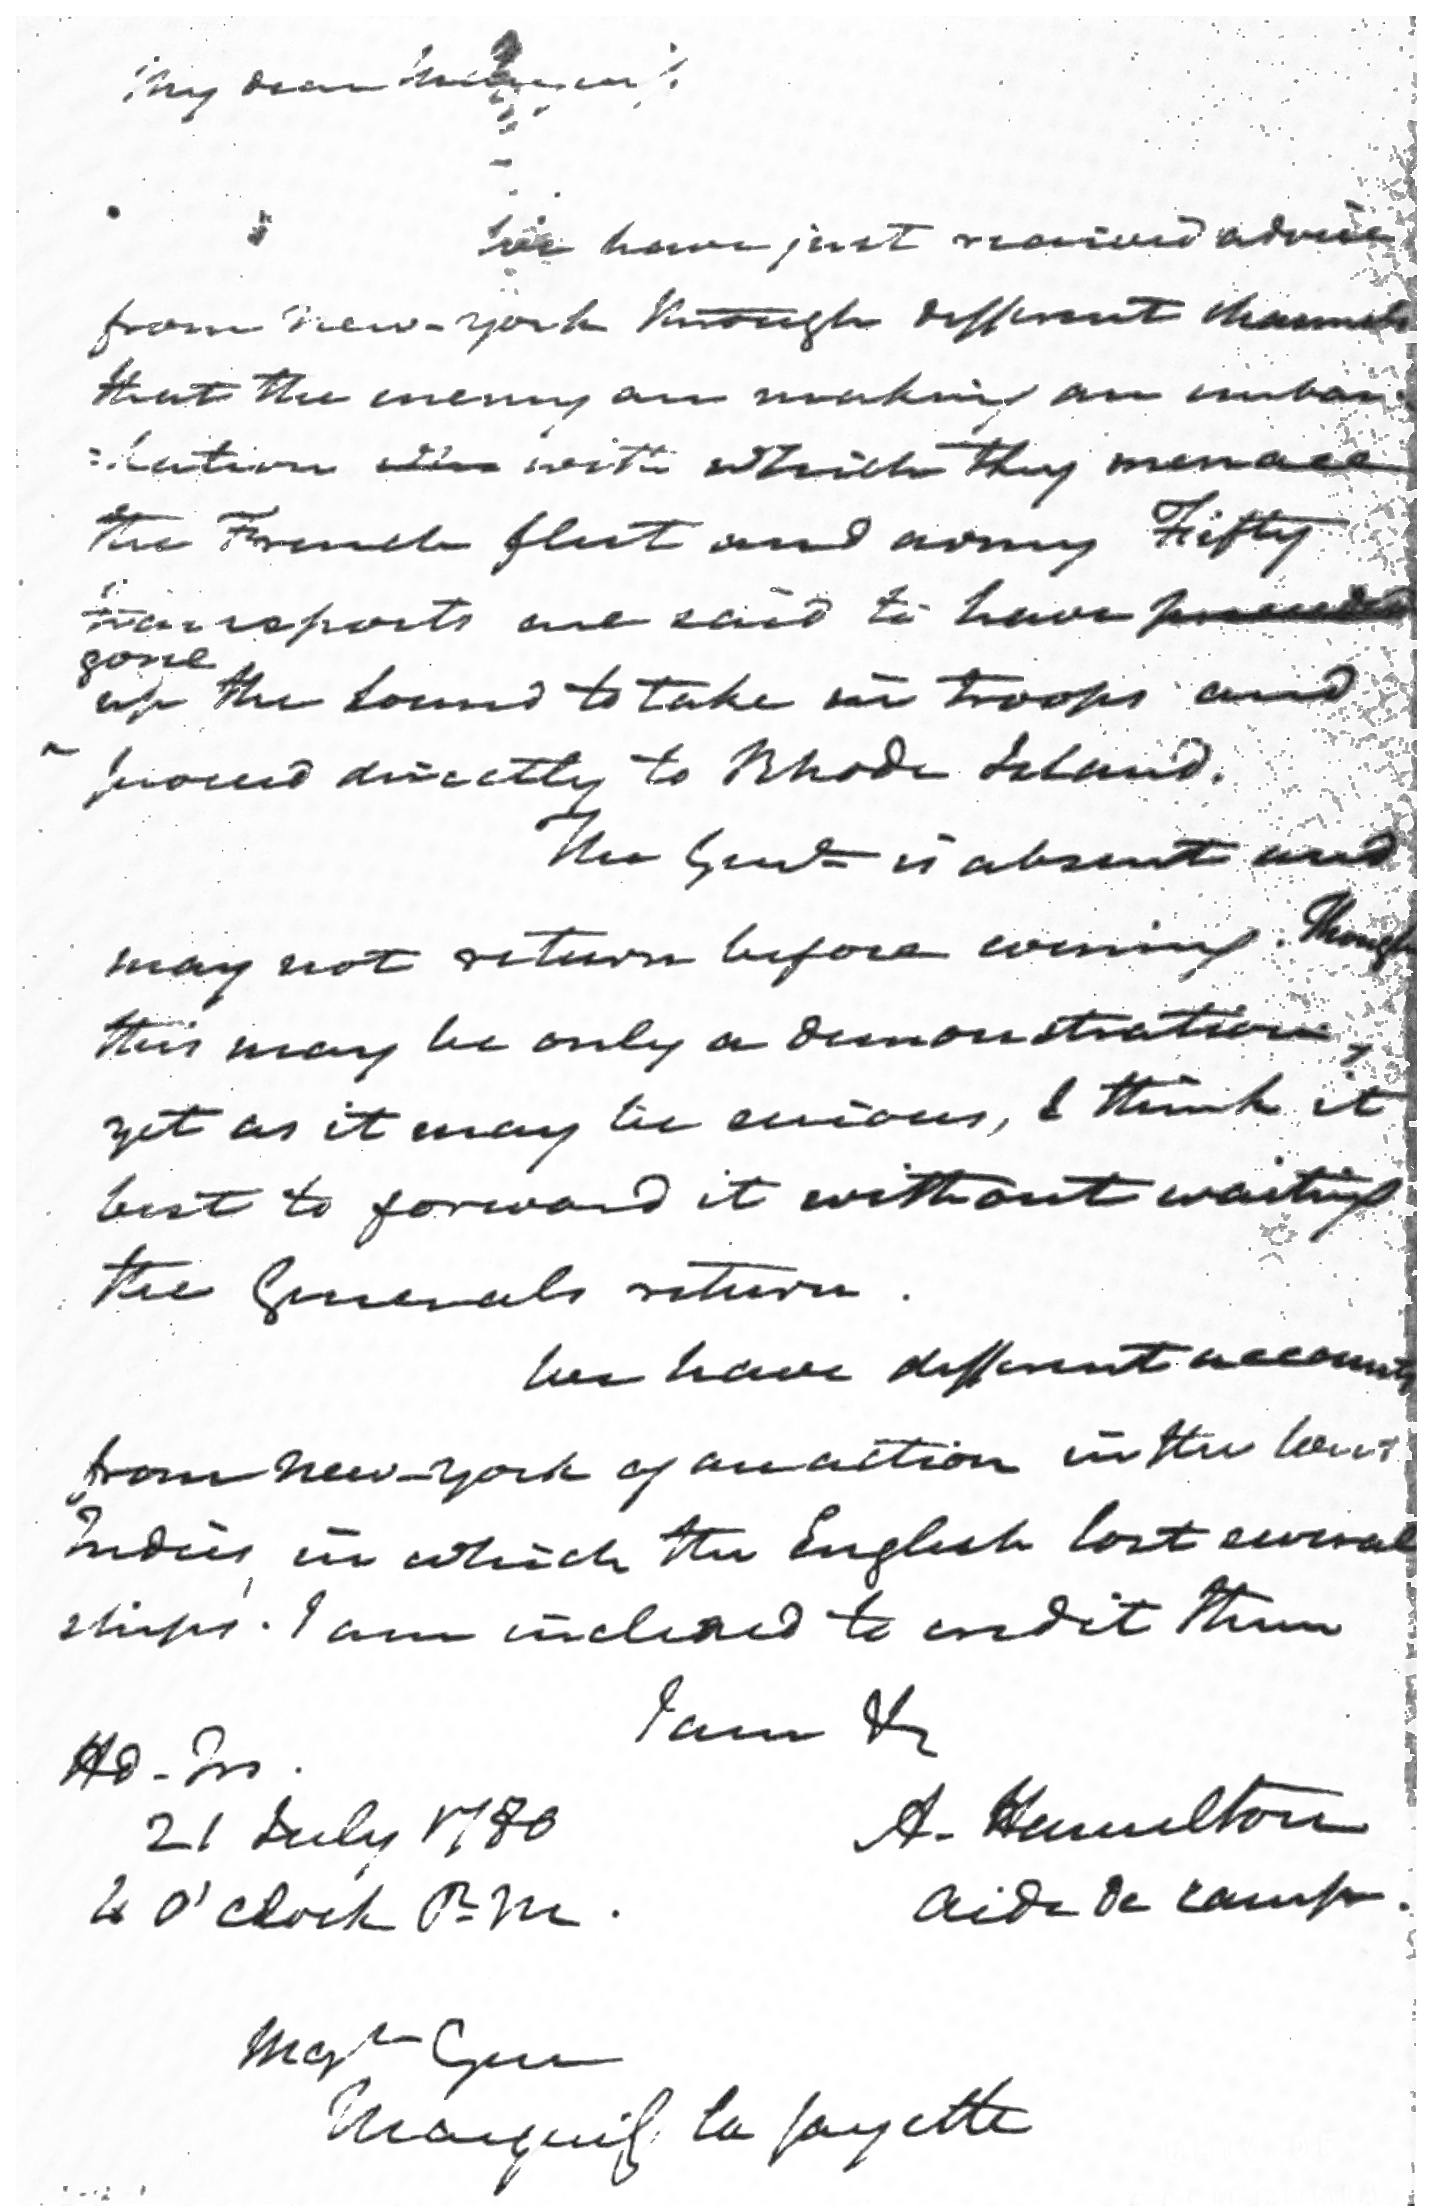 My dear Marquis
We have just received advice
from New-York through different channels
that the enemy are making an embar-
=kation with which they menace
the French fleet and army Fifty
transports are said to have
gone
up the Sound to take in troops and
proceed directly to Rhode Island.
The Genl is absent and
may not return before evening. Though
this may be only a demonstration,
yet as it may be serious, I think it
best to forward it without waiting
the Generals return.
We have different accounts
from New-York of an action in the West
Indies, in which the English lost several
ships. I am inclined to credit them
I am &c
Hd-Qrs.
21 July 1780
A. Hamilton
4 O'Clock P.M.
aide de camp.
Majr Gen
Marquis la fayette